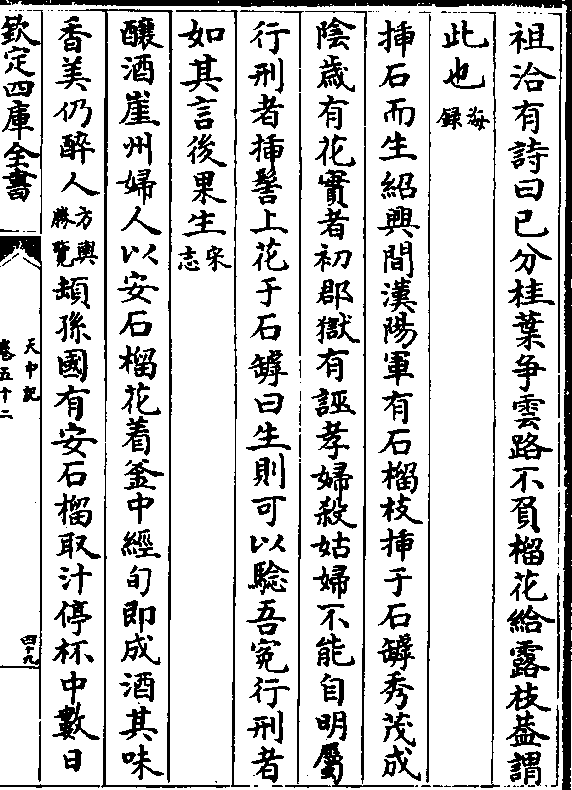 祖洽有詩曰已分桂葉争雲路不負榴花給露枝葢謂
此也海録
揷石而生紹興間漢陽軍有石榴枝揷于石罅秀茂成
陰歳有花實者初郡獄有誣孝婦殺姑婦不能自明屬
行刑者揷髻上花于石罅曰生則可以驗吾寃行刑者
如其言後果生宋志
釀酒崖州婦人以安石榴花着釜中經旬即成酒其味
香美仍醉人方輿勝覽頓孫國有安石榴取汁停杯中數日
欽定四庫全書
天中記
卷五十二
四十九